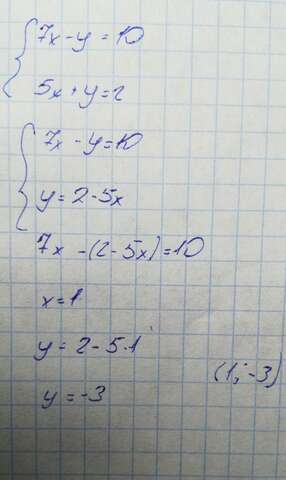 7x - y = 10
5x + y = 2
7x - y = 10
y = 2 - 5x
7x - (2 - 5x) = 10
x = 1
y = 2 - 5·1
y = -3
(1; -3)